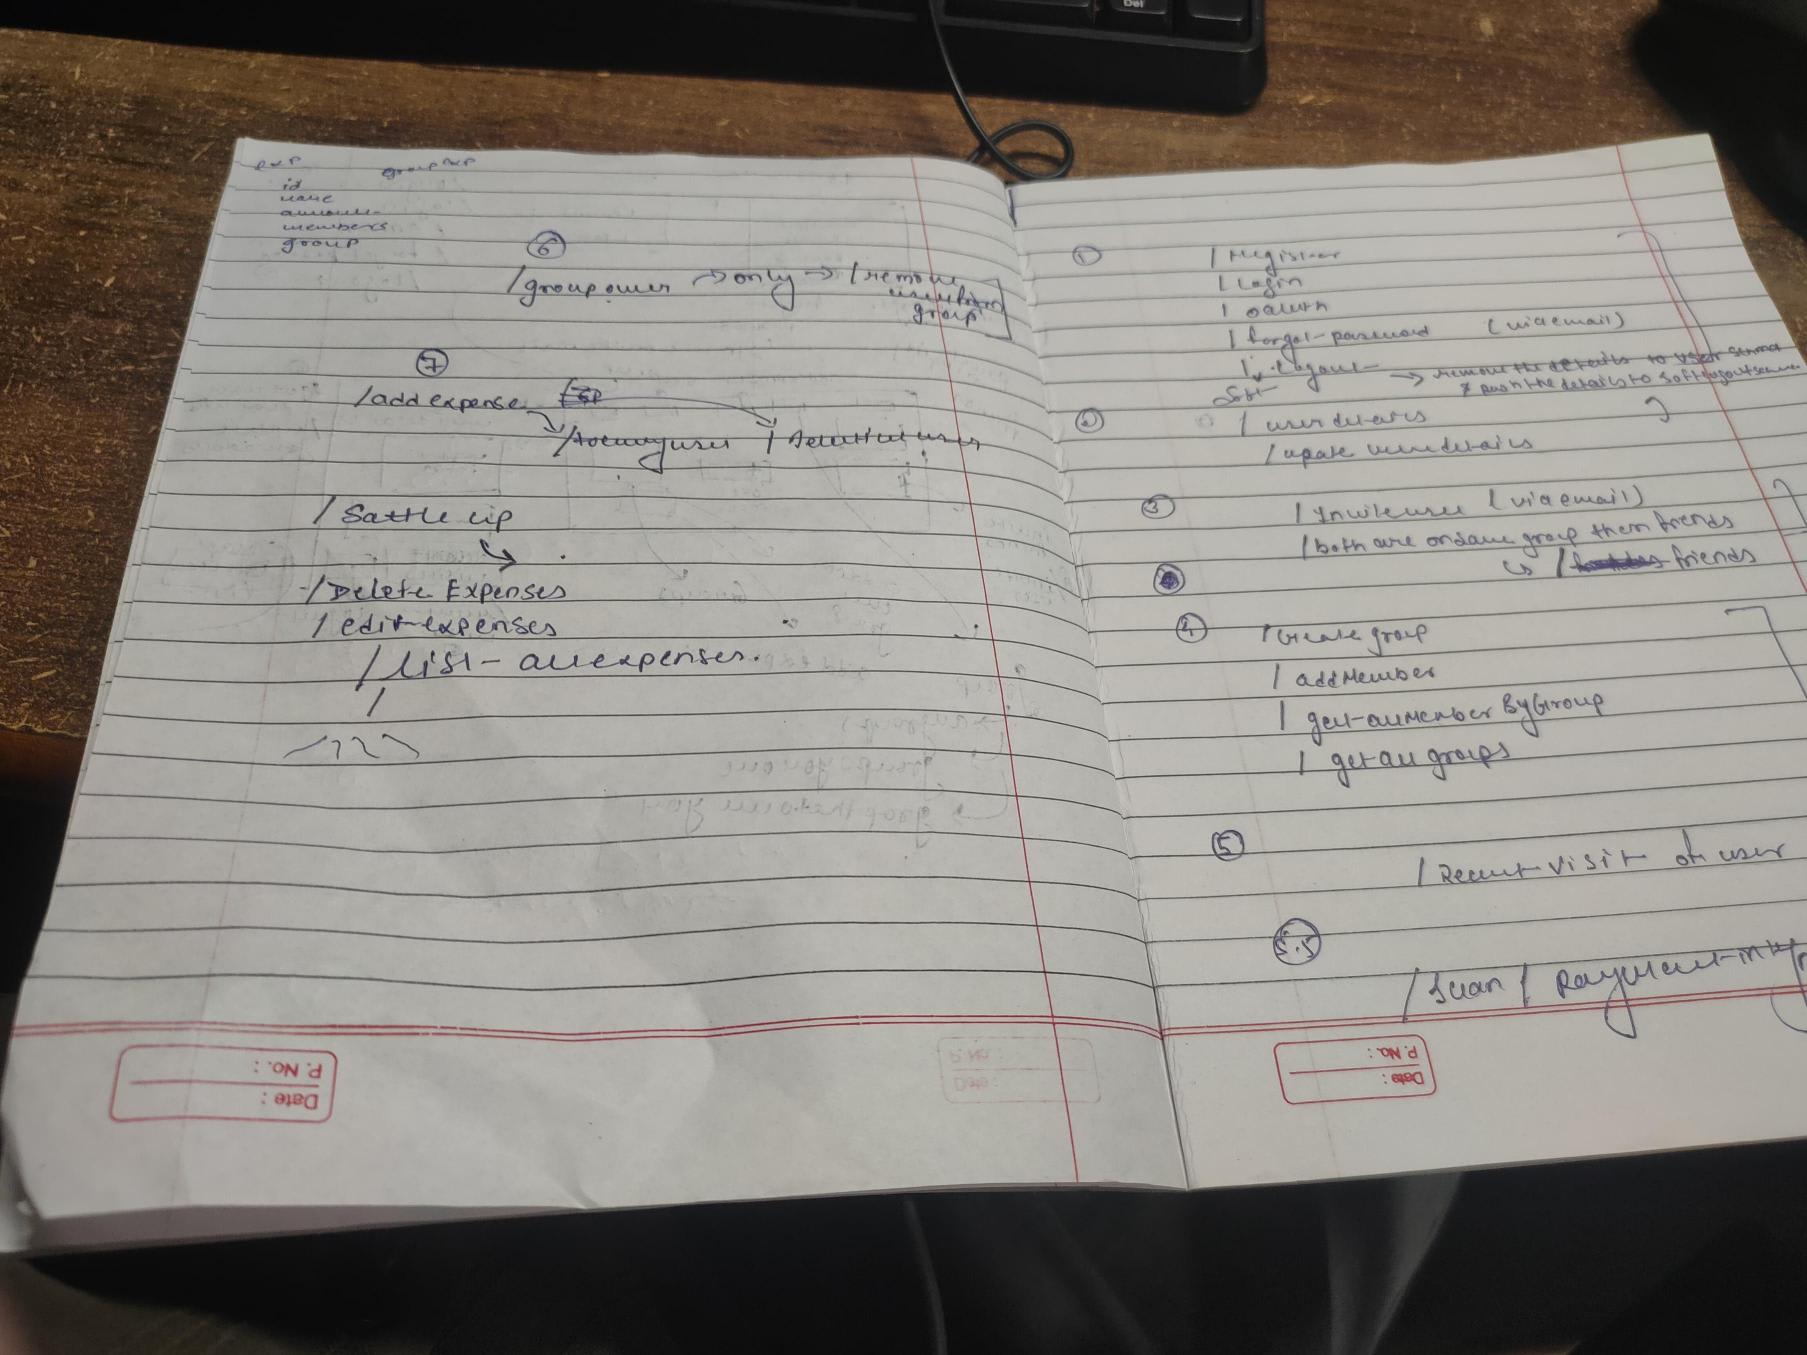 exp groupexp
id
name
amount
members
group
6
/groupowner → only → /remove
user from
group
7
/add expense
/toemyuser /
/Sattle up
/Delete Expenses
/edit-expenses
/list-allexpenses.
/
P. No. :
Date :
1
/Register
/Login
/oauth
/forgot-password (via email)
/Logout → remove the details to user server
Soft & push the details to softlogoutserver
2
/userdetails
/upate userdetails
3
/Inviteuser (via email)
/both are on same group them friends
↳ / friends
4
/create group
/addMember
/get-allMemberByGroup
/get all groups
5
/Recent visit of user
5.5
/Scan /
P. No. :
Date :